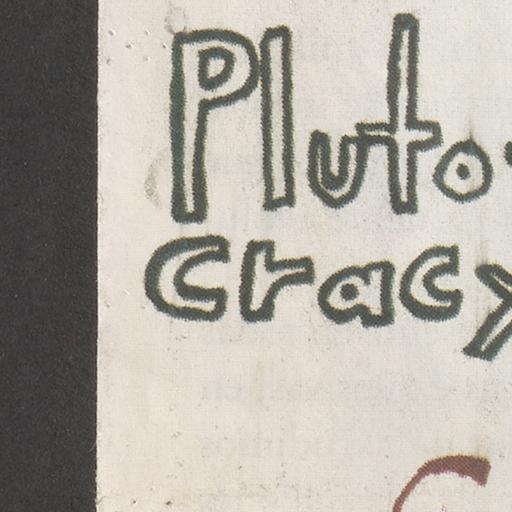 Pluto-
cracy